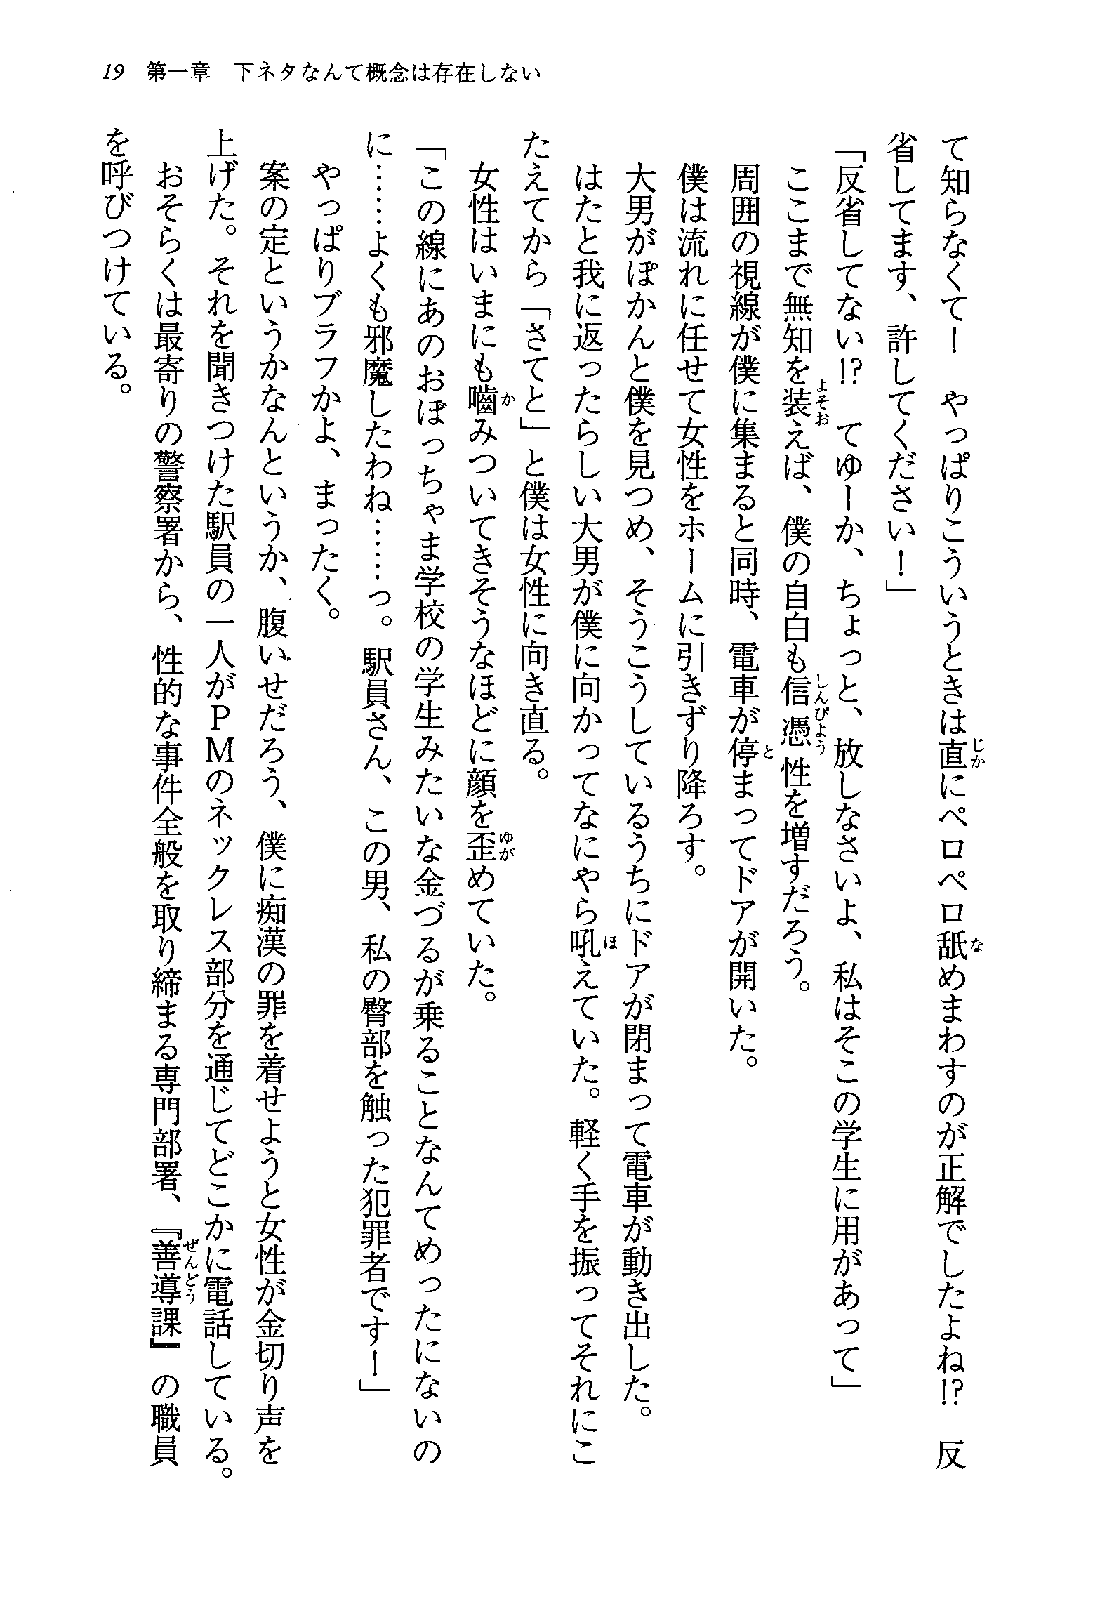 19　第一章　下ネタなんて概念は存在しない
て知らなくて！　やっぱりこういうときは直にペロペロ舐めまわすのが正解でしたよね!?　反
省してます、許してください！」
「反省してない!?　てゆーか、ちょっと、放しなさいよ、私はそこの学生に用があって」
ここまで無知を装えば、僕の自白も信憑性を増すだろう。
周囲の視線が僕に集まると同時、電車が停まってドアが開いた。
僕は流れに任せて女性をホームに引きずり降ろす。
大男がぽかんと僕を見つめ、そうこうしているうちにドアが閉まって電車が動き出した。
はたと我に返ったらしい大男が僕に向かってなにやら吼えていた。軽く手を振ってそれにこ
たえてから「さてと」と僕は女性に向き直る。
女性はいまにも嚙みついてきそうなほどに顔を歪めていた。
「この線にあのおぼっちゃま学校の学生みたいな金づるが乗ることなんてめったにないの
に……よくも邪魔したわね……っ。駅員さん、この男、私の臀部を触った犯罪者です！」
やっぱりブラフかよ、まったく。
案の定というかなんというか、腹いせだろう、僕に痴漢の罪を着せようと女性が金切り声を
上げた。それを聞きつけた駅員の一人がＰＭのネックレス部分を通じてどこかに電話している。
おそらくは最寄りの警察署から、性的な事件全般を取り締まる専門部署、『善導課』の職員
を呼びつけている。